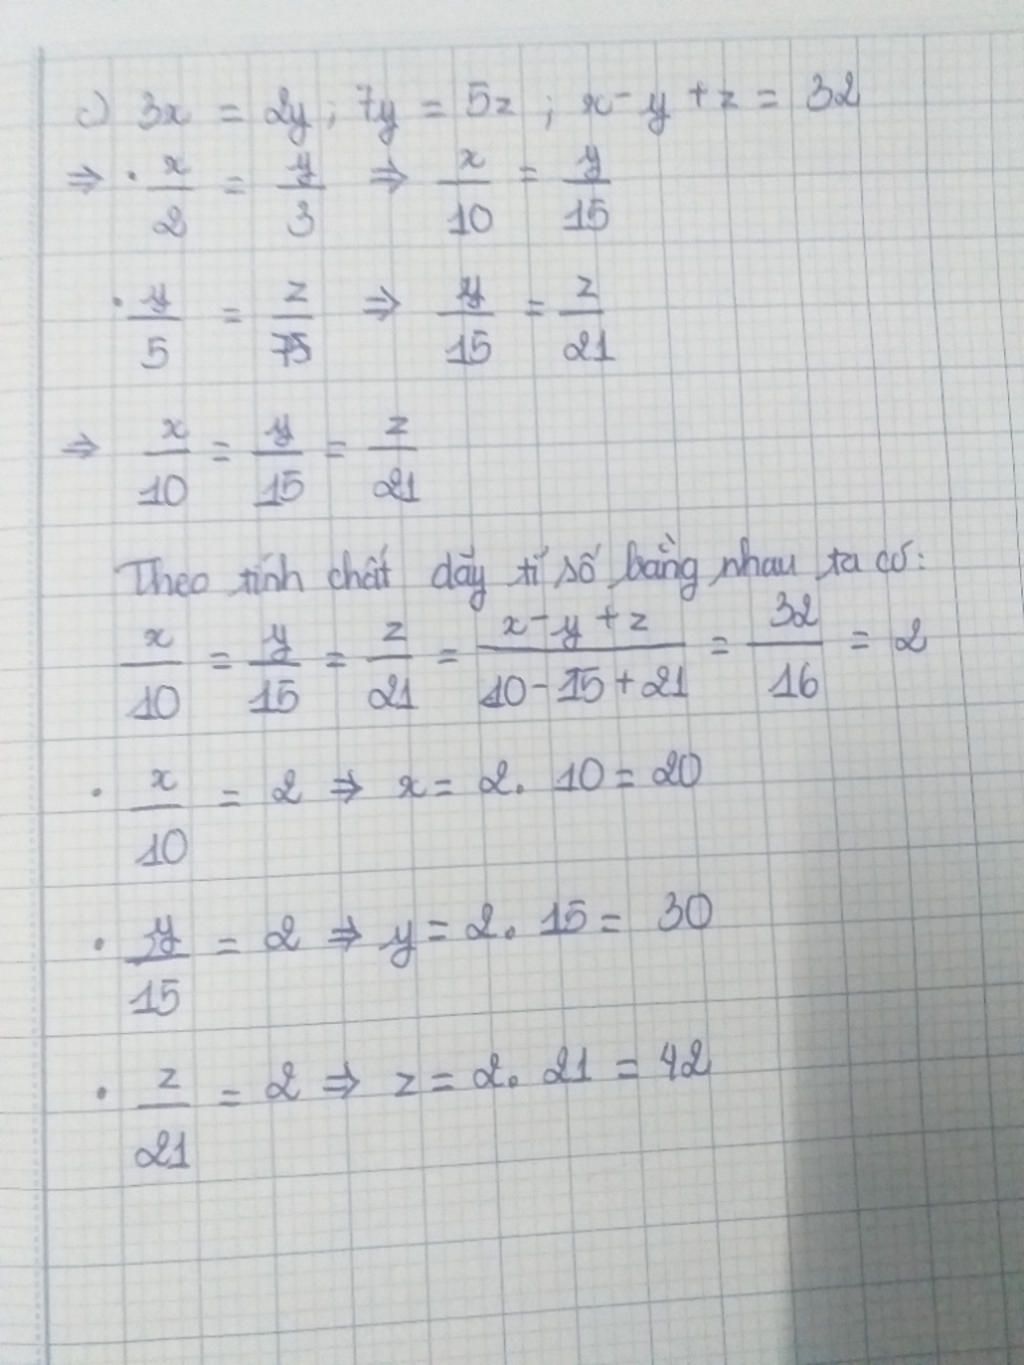 c) 3x = 2y ; 7y = 5z ; x - y + z = 32
⇒ • x/2 = y/3 ⇒ x/10 = y/15
• y/5 = z/7 ⇒ y/15 = z/21
⇒ x/10 = y/15 = z/21
Theo tính chất dãy tỉ số bằng nhau ta có:
x/10 = y/15 = z/21 = x - y + z/10 - 15 + 21 = 32/16 = 2
• x/10 = 2 ⇒ x = 2. 10 = 20
• y/15 = 2 ⇒ y = 2. 15 = 30
• z/21 = 2 ⇒ z = 2. 21 = 42